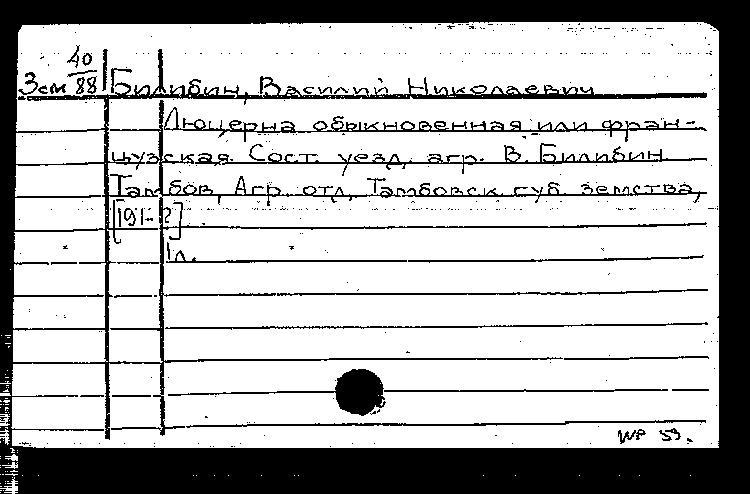 40
Зем 88 Билибин, Василий Николаевич
Люцерна обыкновенная или фран-
цузская. Сост. уезд. агр. В. Билибин.
Тамбов, Агр. отд. Тамбовск. губ. земства,
[191-?]
1л.